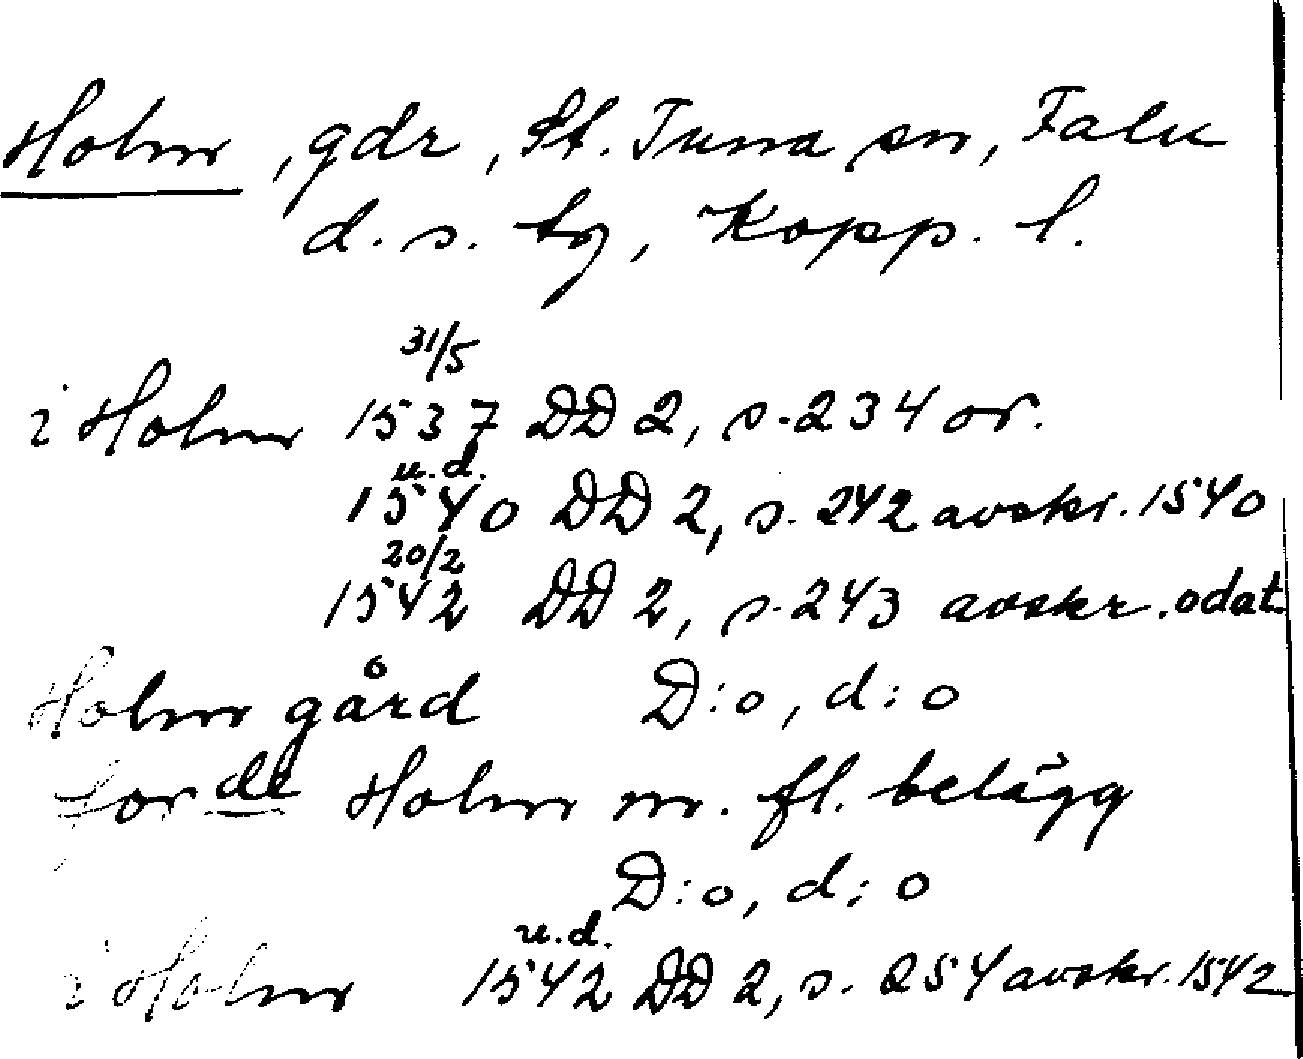 Holm, gdr, St. Tuna sn, Falu
d. s. tg, Kopp. l.
31/5
i Holm 1537 DD 2, s. 234 or.
u.d.
1540 DD 2, s. 242 avskr. 1540
20/2
1542 DD 2, s. 243 avskr. odat.
Holm gård D:o, d:o
for de Holm m. fl. belägg
D:o, d:o
u.d.
i Holm 1542 DD 2, s. 254 avskr. 1542